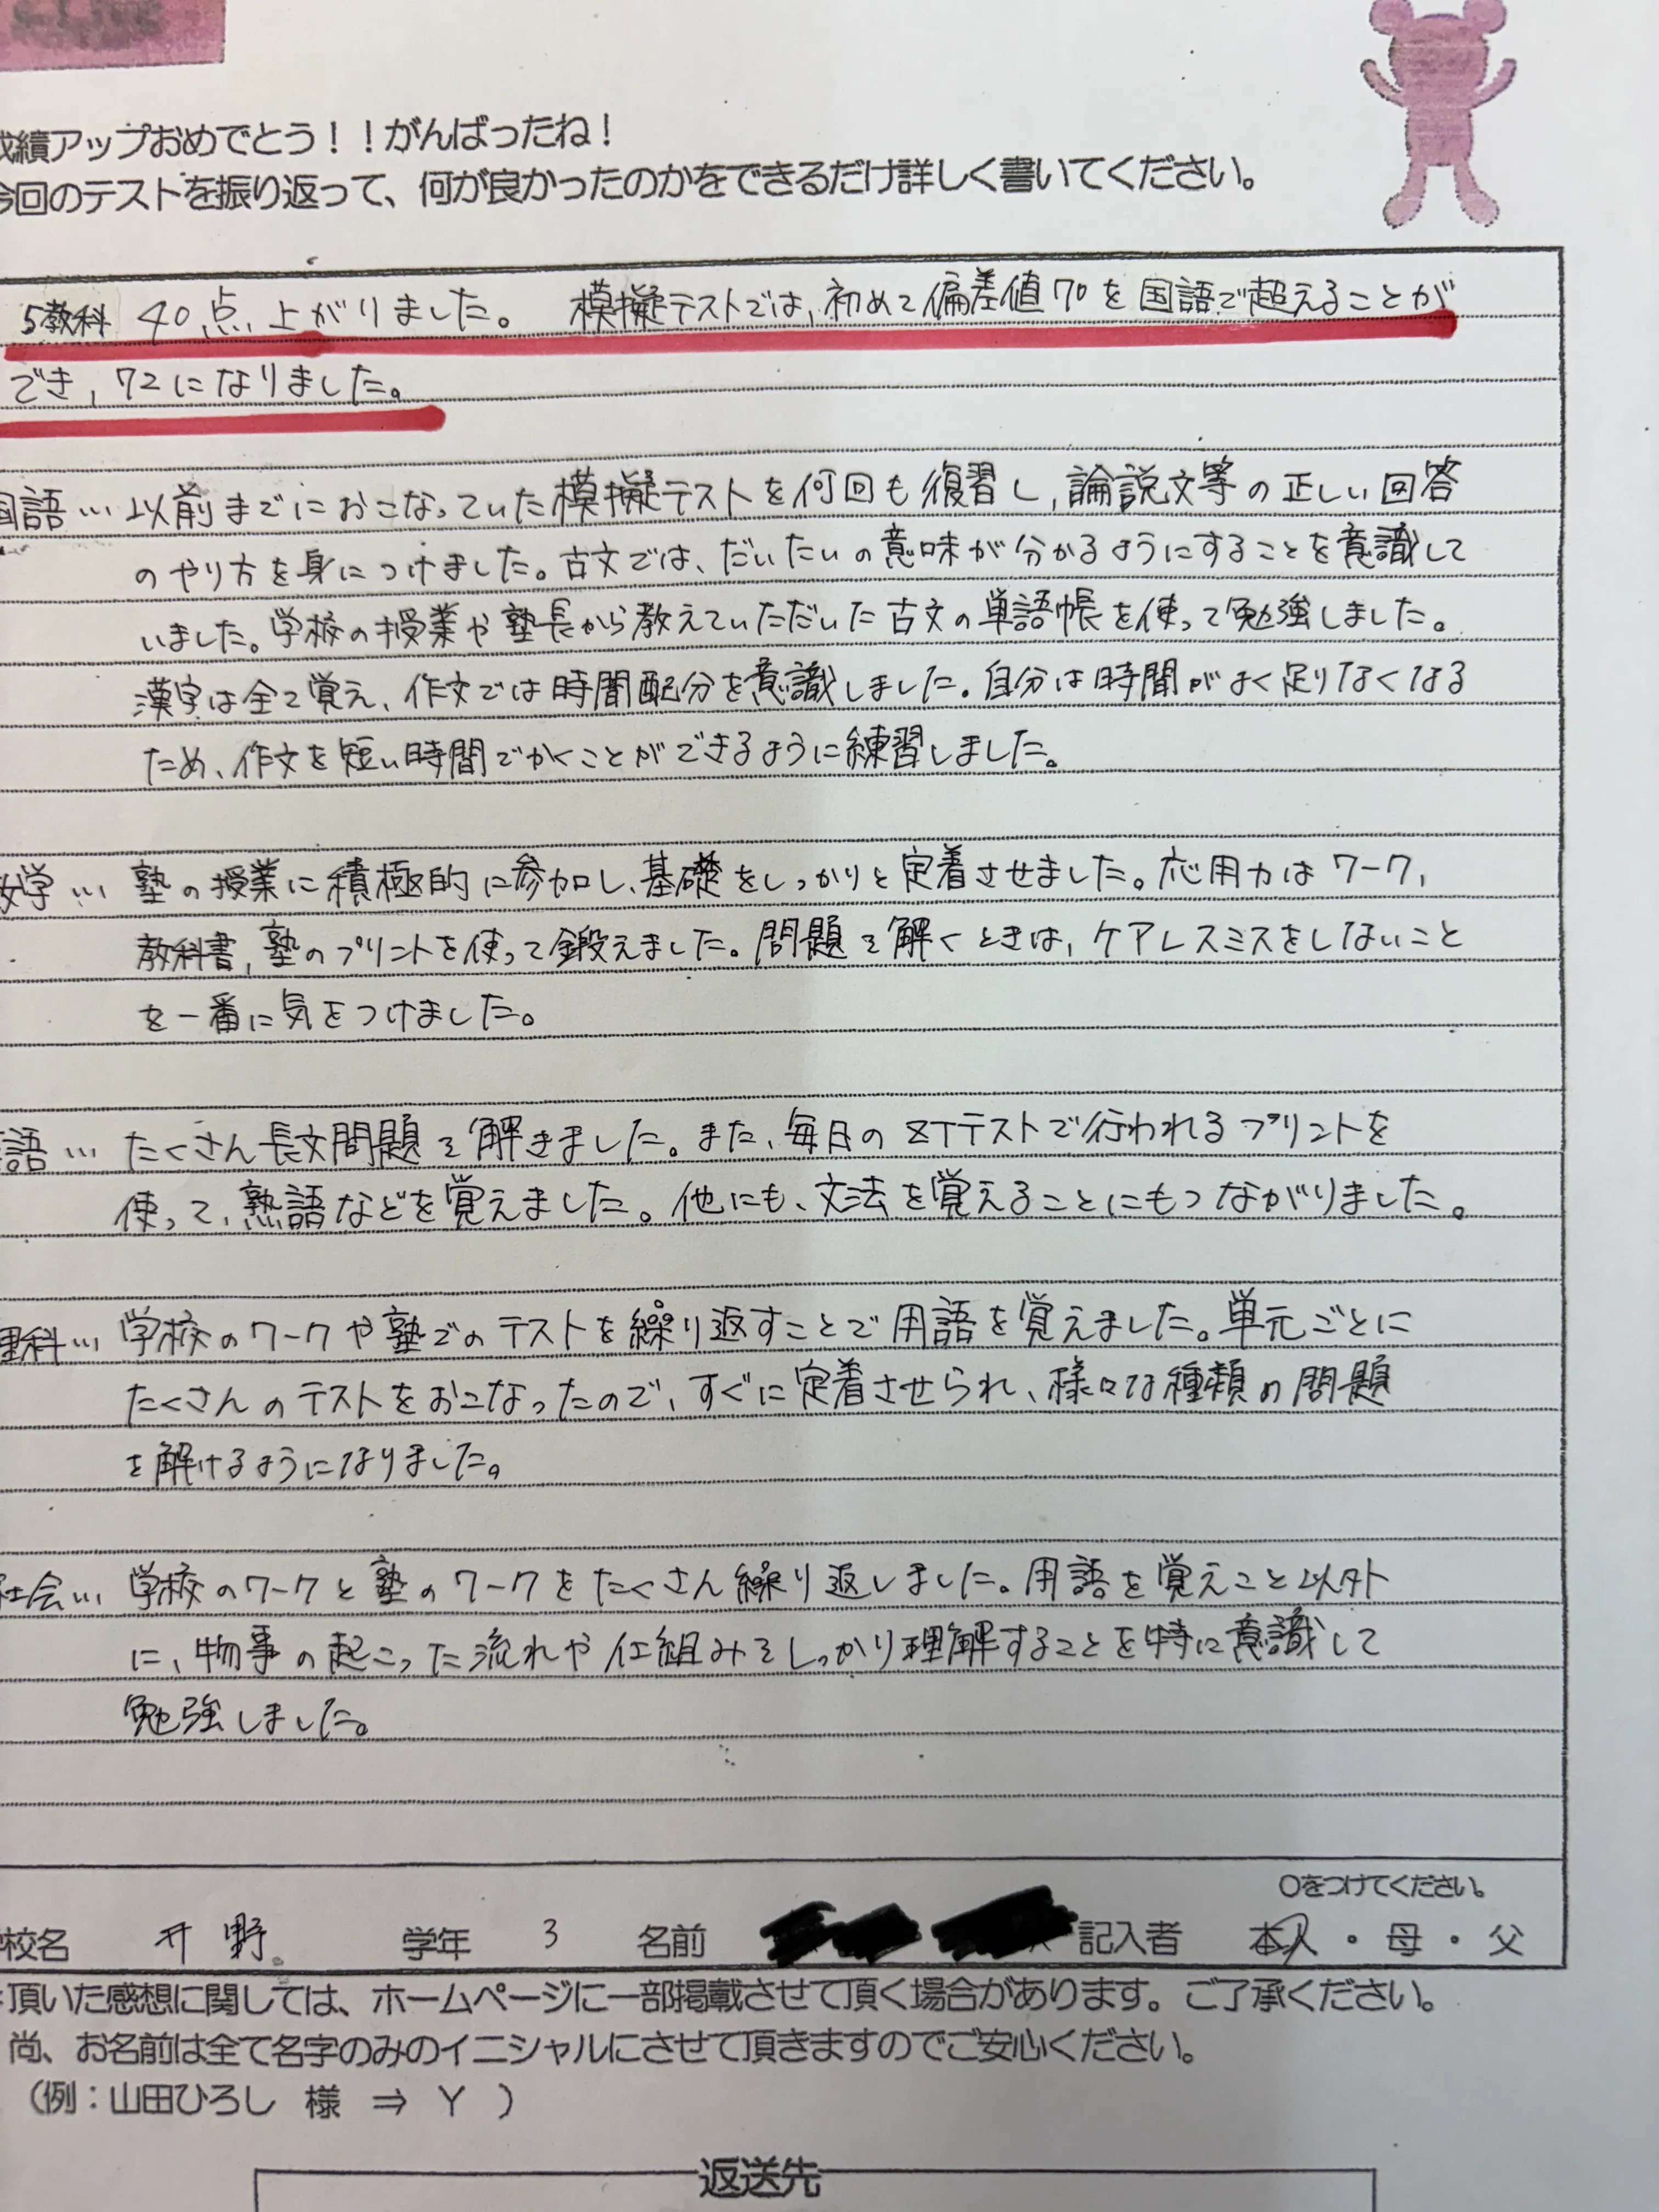 成績アップおめでとう！！がんばったね！
今回のテストを振り返って、何が良かったのかをできるだけ詳しく書いてください。
5教科 40点上がりました。 模擬テストでは、初めて偏差値70を国語で超えることが
でき、72になりました。
国語… 以前までにおこなっていた模擬テストを何回も復習し、論説文等の正しい回答
のやり方を身につけました。古文では、だいたいの意味が分かるようにすることを意識して
いました。学校の授業や塾長から教えていただいた古文の単語帳を使って勉強しました。
漢字は全て覚え、作文では時間配分を意識しました。自分は時間がよく足りなくなる
ため、作文を短い時間でかくことができるように練習しました。
数学… 塾の授業に積極的に参加し、基礎をしっかりと定着させました。応用力はワーク,
教科書,塾のプリントを使って鍛えました。問題を解くときは,ケアレスミスをしないこと
を一番に気をつけました。
語… たくさん長文問題を解きました。また、毎日のZTテストで行われるプリントを
使って、熟語などを覚えました。他にも、文法を覚えることにもつながりました。
理科… 学校のワークや塾でのテストを繰り返すことで用語を覚えました。単元ごとに
たくさんのテストをおこなったので、すぐに定着させられ、様々な種類の問題
を解けるようになりました。
社会… 学校のワークと塾のワークをたくさん繰り返しました。用語を覚えこと以外
に、物事の起こった流れや仕組みをしっかり理解することを特に意識して
勉強しました。
○をつけてください。
校名 井野 学年 3 名前 記入者 本人・母・父
頂いた感想に関しては、ホームページに一部掲載させて頂く場合があります。ご了承ください。
尚、お名前は全て名字のみのイニシャルにさせて頂きますのでご安心ください。
（例：山田ひろし 様 ⇒ Y ）
返送先